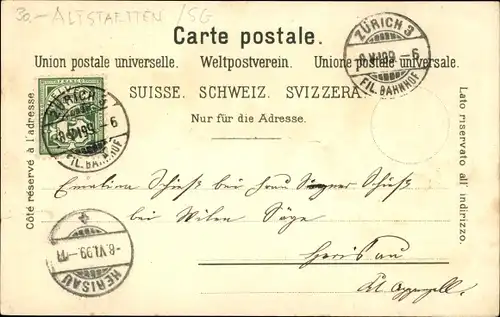 30.- ALTSTAETTEN /SG
Carte postale.
Union postale universelle. Weltpostverein. Unione postale universale.
SUISSE. SCHWEIZ. SVIZZERA.
Nur für die Adresse.
Côté réservé à l'adresse.
Lato riservato all' indirizzo.
ZÜRICH 3
8.VI.99.-6
FIL. BAHNHOF
ZÜRICH 3
8.VI.99.-6
FIL. BAHNHOF
Emalina Schieß bei Frau Schieß
bei Säge
Herisau
Ct. Appenzell.
-8.VI.99.-11
HERISAU